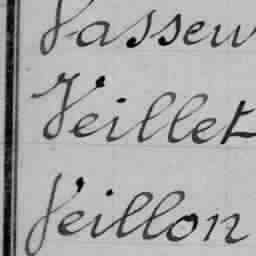 Vasseu
Veillet
Veillon